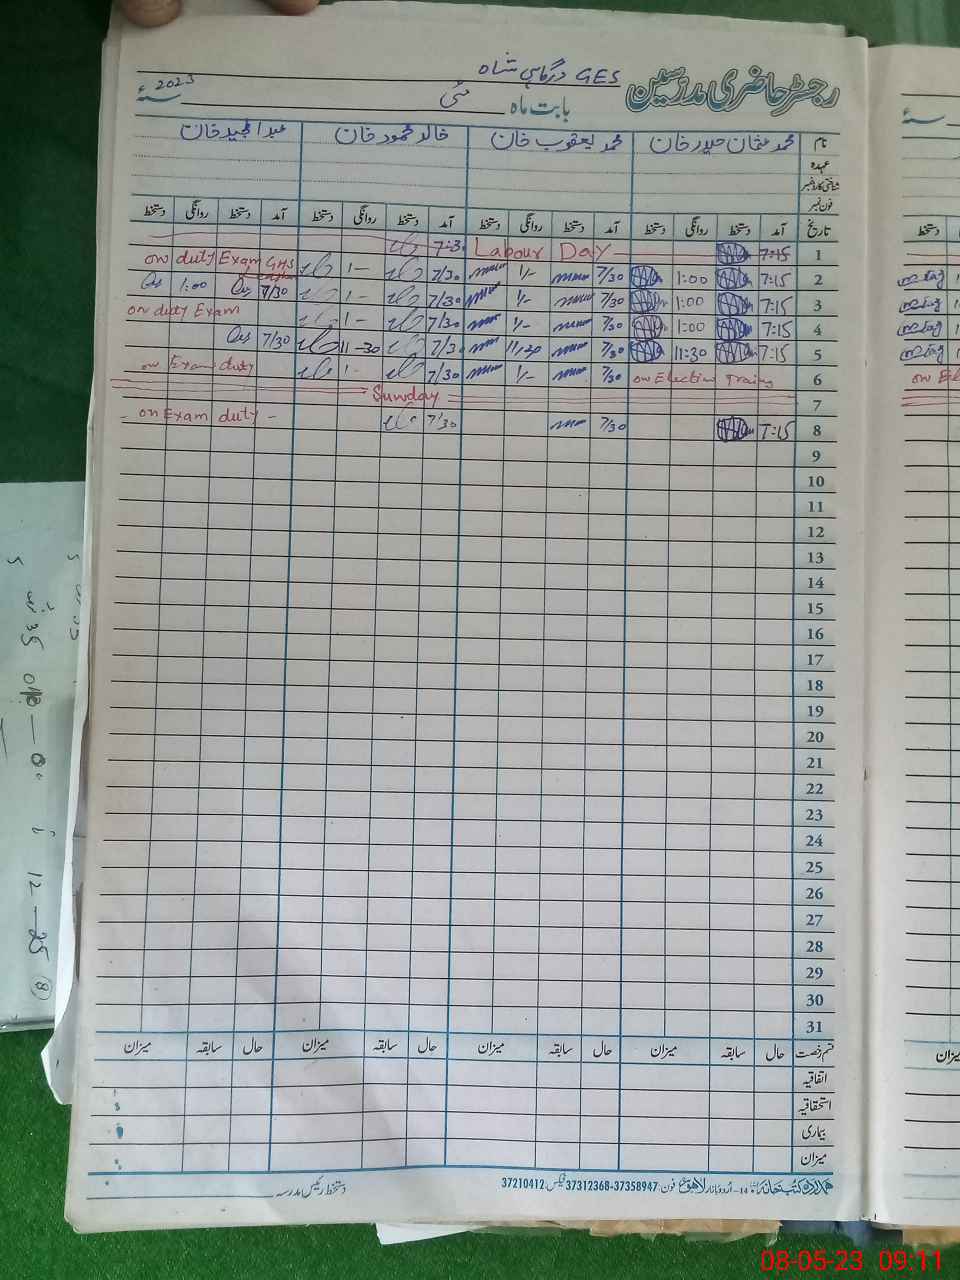 رجسٹر حاضری مدرسین GES درگاہی شاہ
بابت ماہ مئی سنہ 2023
نام محمد عثمان حیدر خان محمد یعقوب خان خالد محمود خان عبدالمجید خان
عہدہ
شناختی کارڈ نمبر
فون نمبر
تاریخ آمد دستخط روانگی دستخط آمد دستخط روانگی دستخط آمد دستخط روانگی دستخط آمد دستخط روانگی دستخط
1 7:15 Labour Day 7:30
2 7:15 1:00 7/30 1/- 7/30 1- on duty Exam GHS
3 7:15 1:00 7/30 1/- 7/30 1- 7/30 1:00
4 7:15 1:00 7/30 1/- 7/30 1- on duty Exam
5 7:15 11:30 7/30 11/30 7/30 11-30 7/30
6 on Election Traing 7/30 1/- 7/30 1- on Exam duty
7 Sunday
8 7:15 7/30 7/30 - on Exam duty -
9
10
11
12
13
14
15
16
17
18
19
20
21
22
23
24
25
26
27
28
29
30
31
قسم رخصت حال سابقہ میزان حال سابقہ میزان حال سابقہ میزان حال سابقہ میزان
اتفاقیہ
استحقاقیہ
بیماری
میزان
ہمدرد کتب خانہ 14-اردو بازار لاہور فون: 37358947-37312368 فیکس: 37210412 دستخط رئیس مدرسہ
12-25
8
08-05-23 09:11